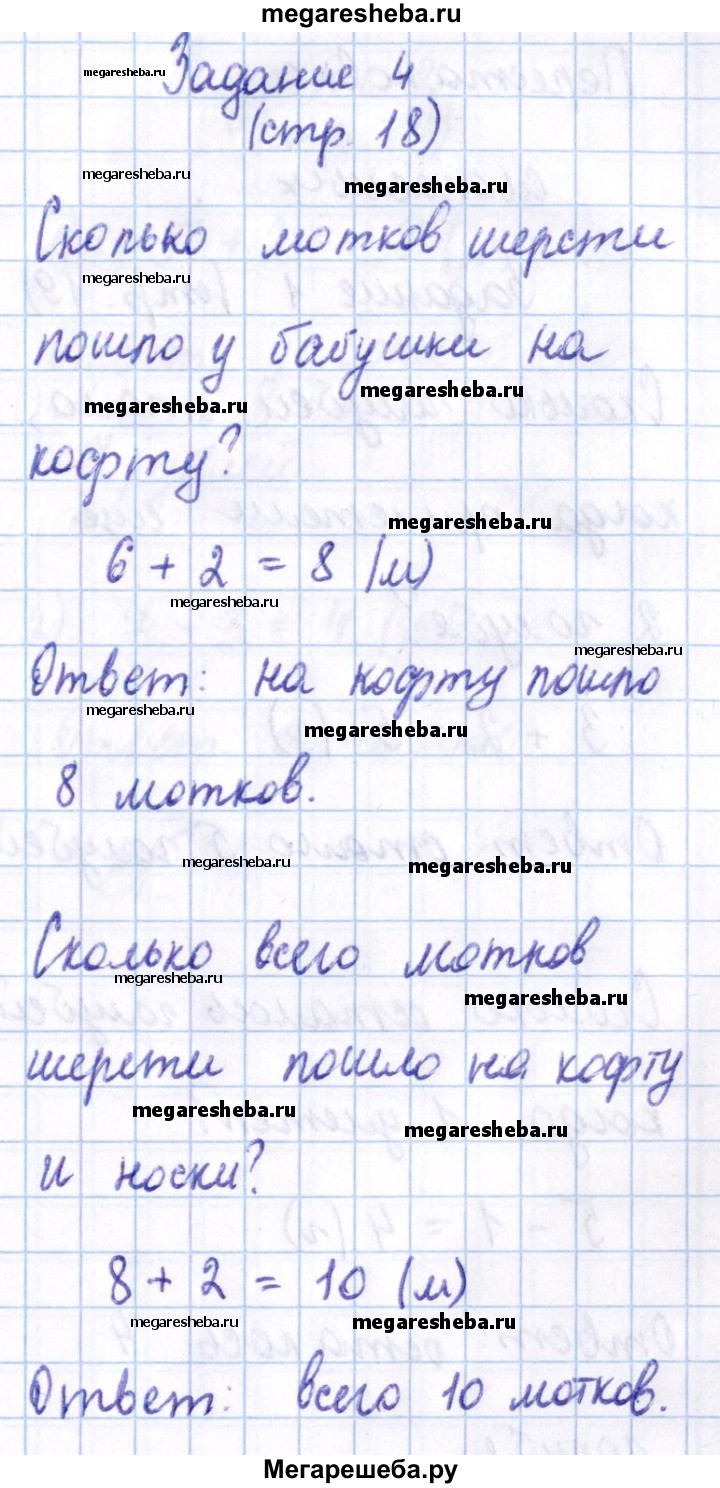 megaresheba.ru
Задание 4
megaresheba.ru
(стр. 18)
megaresheba.ru
megaresheba.ru
Сколько мотков шерсти
megaresheba.ru
пошло у бабушки на
megaresheba.ru
megaresheba.ru
кофту?
megaresheba.ru
6 + 2 = 8 (м)
megaresheba.ru
megaresheba.ru
Ответ: на кофту пошло
megaresheba.ru
megaresheba.ru
8 мотков.
megaresheba.ru
megaresheba.ru
Сколько всего мотков
megaresheba.ru
megaresheba.ru
шерсти пошло на кофту
megaresheba.ru
megaresheba.ru
и носки?
8 + 2 = 10 (м)
megaresheba.ru
megaresheba.ru
Ответ: всего 10 мотков.
Мегарешеба.ру